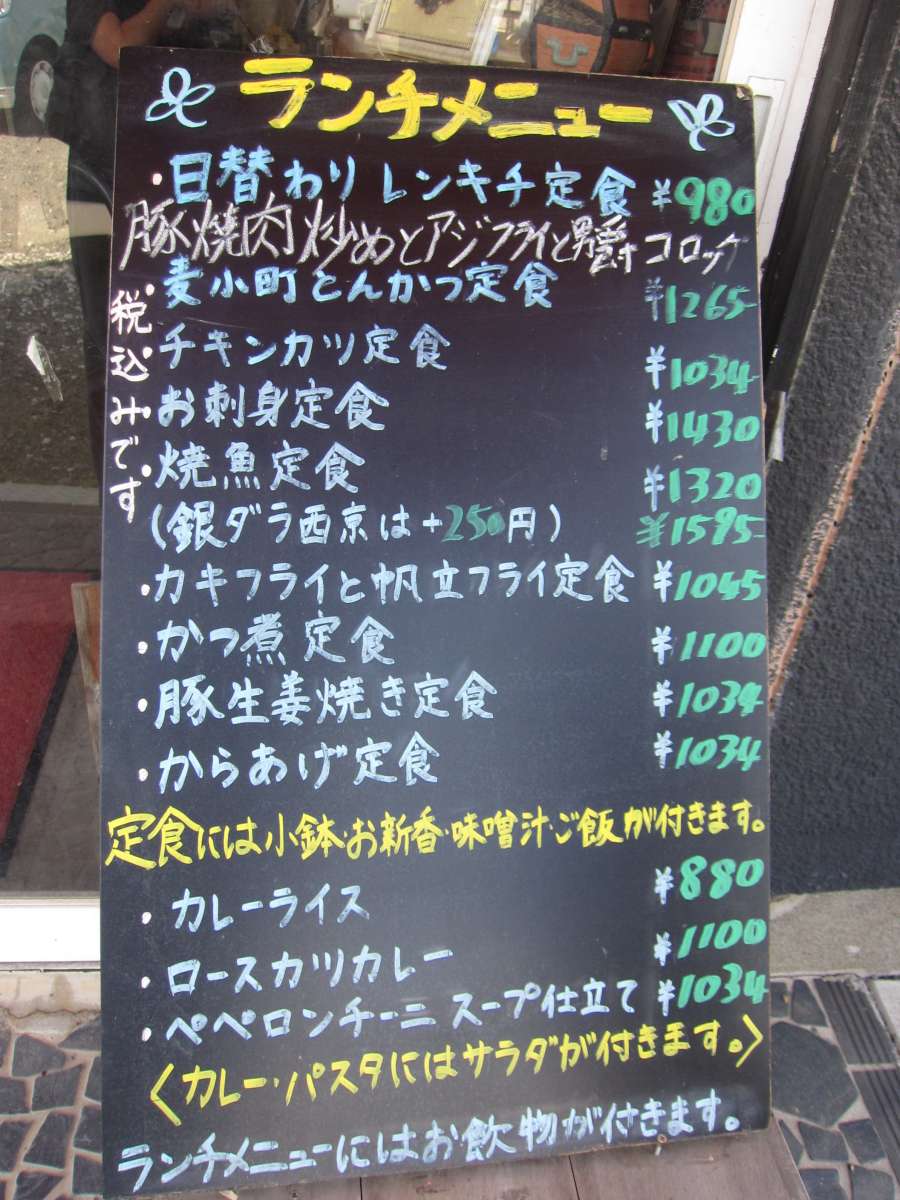 ランチメニュー
・日替わりレンキチ定食 ¥980
豚焼肉炒めとアジフライと男爵コロッケ
・麦小町とんかつ定食 ¥1265-
・チキンカツ定食 ¥1034-
・お刺身定食 ¥1430
・焼魚定食 ¥1320
(銀ダラ西京は+250円) ¥1595-
・カキフライと帆立フライ定食 ¥1045
・かつ煮定食 ¥1100
・豚生姜焼き定食 ¥1034
・からあげ定食 ¥1034
税込みです
定食には小鉢・お新香・味噌汁・ご飯が付きます。
・カレーライス ¥880
・ロースカツカレー ¥1100
・ペペロンチーニ スープ仕立て ¥1034
〈カレー・パスタにはサラダが付きます。〉
ランチメニューにはお飲物が付きます。